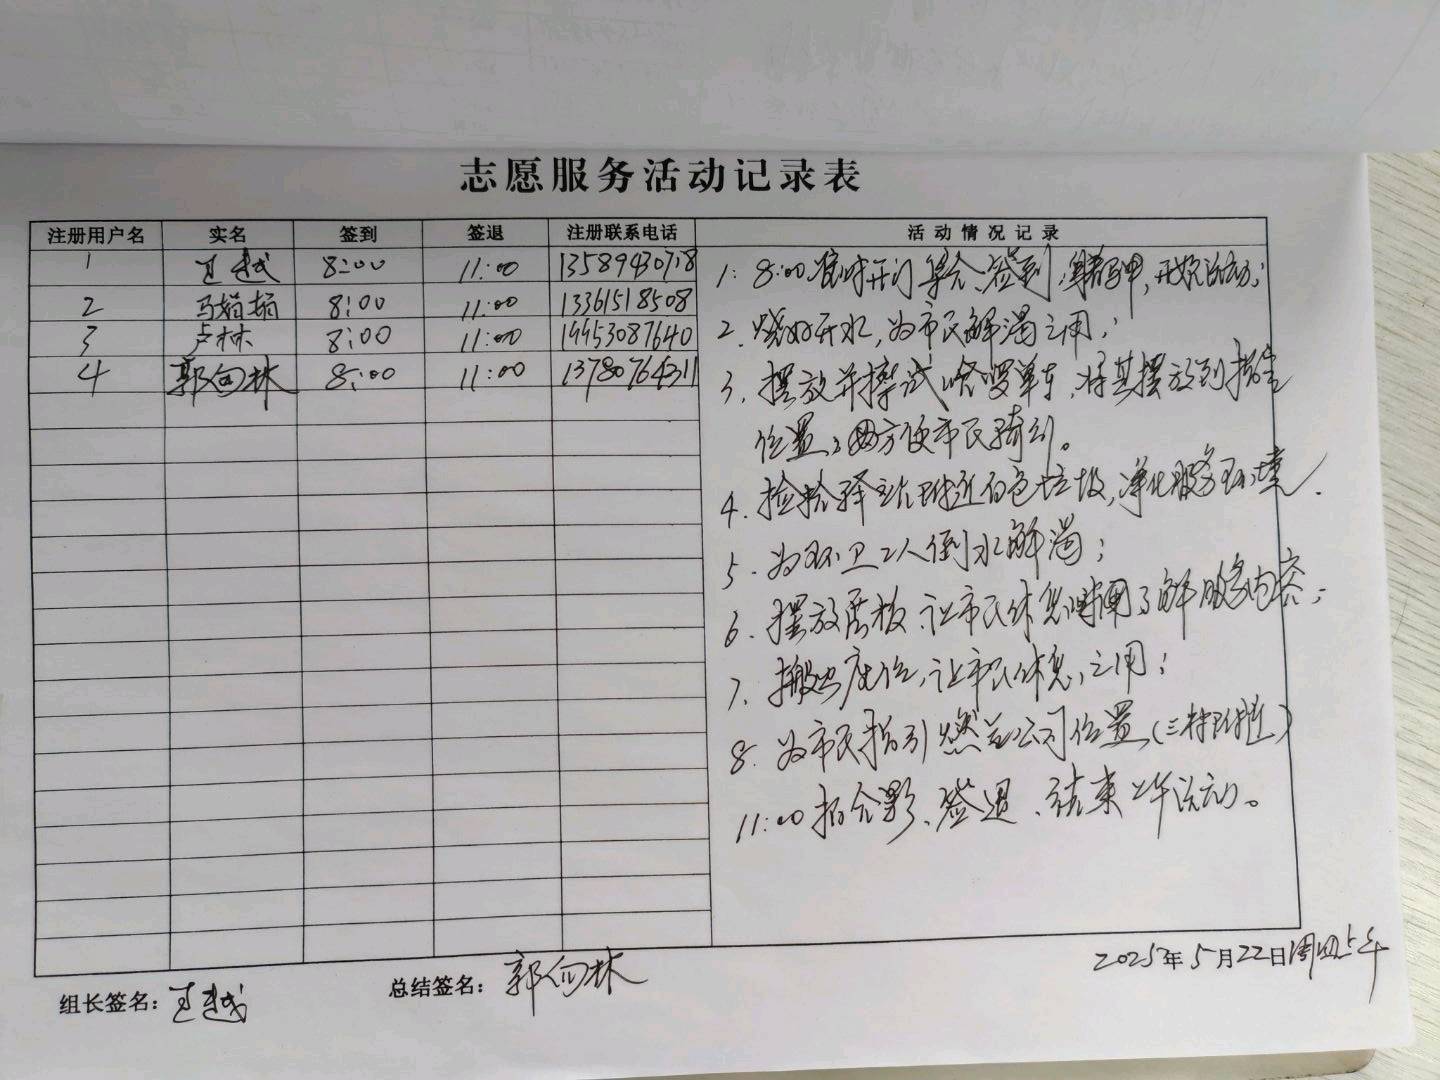 志愿服务活动记录表
注册用户名 实名 签到 签退 注册联系电话 活动情况记录
1 王越 8:00 11:00 13589430718
2 马娟娟 8:00 11:00 13361518508
3 卢林 8:00 11:00 19953087640
4 郭向林 8:00 11:00 13780764311
1: 8:00准时开门集合、签到、穿马甲,开始活动;
2. 烧好开水,为市民解渴之用;
3. 摆放并擦试哈罗单车,将其摆放到指定
位置,方便市民骑行。
4. 捡拾驿站附近白色垃圾,净化服务环境.
5. 为环卫工人倒水解渴;
6. 摆放展板、让市民休息时了解服务内容;
7. 搬出座位,让市民休息之用;
8. 为市民指引燃气公司位置(三村附近)
11:00拍合影、签退、结束上午活动。
组长签名: 王越 总结签名: 郭向林 2025年5月22日周四上午